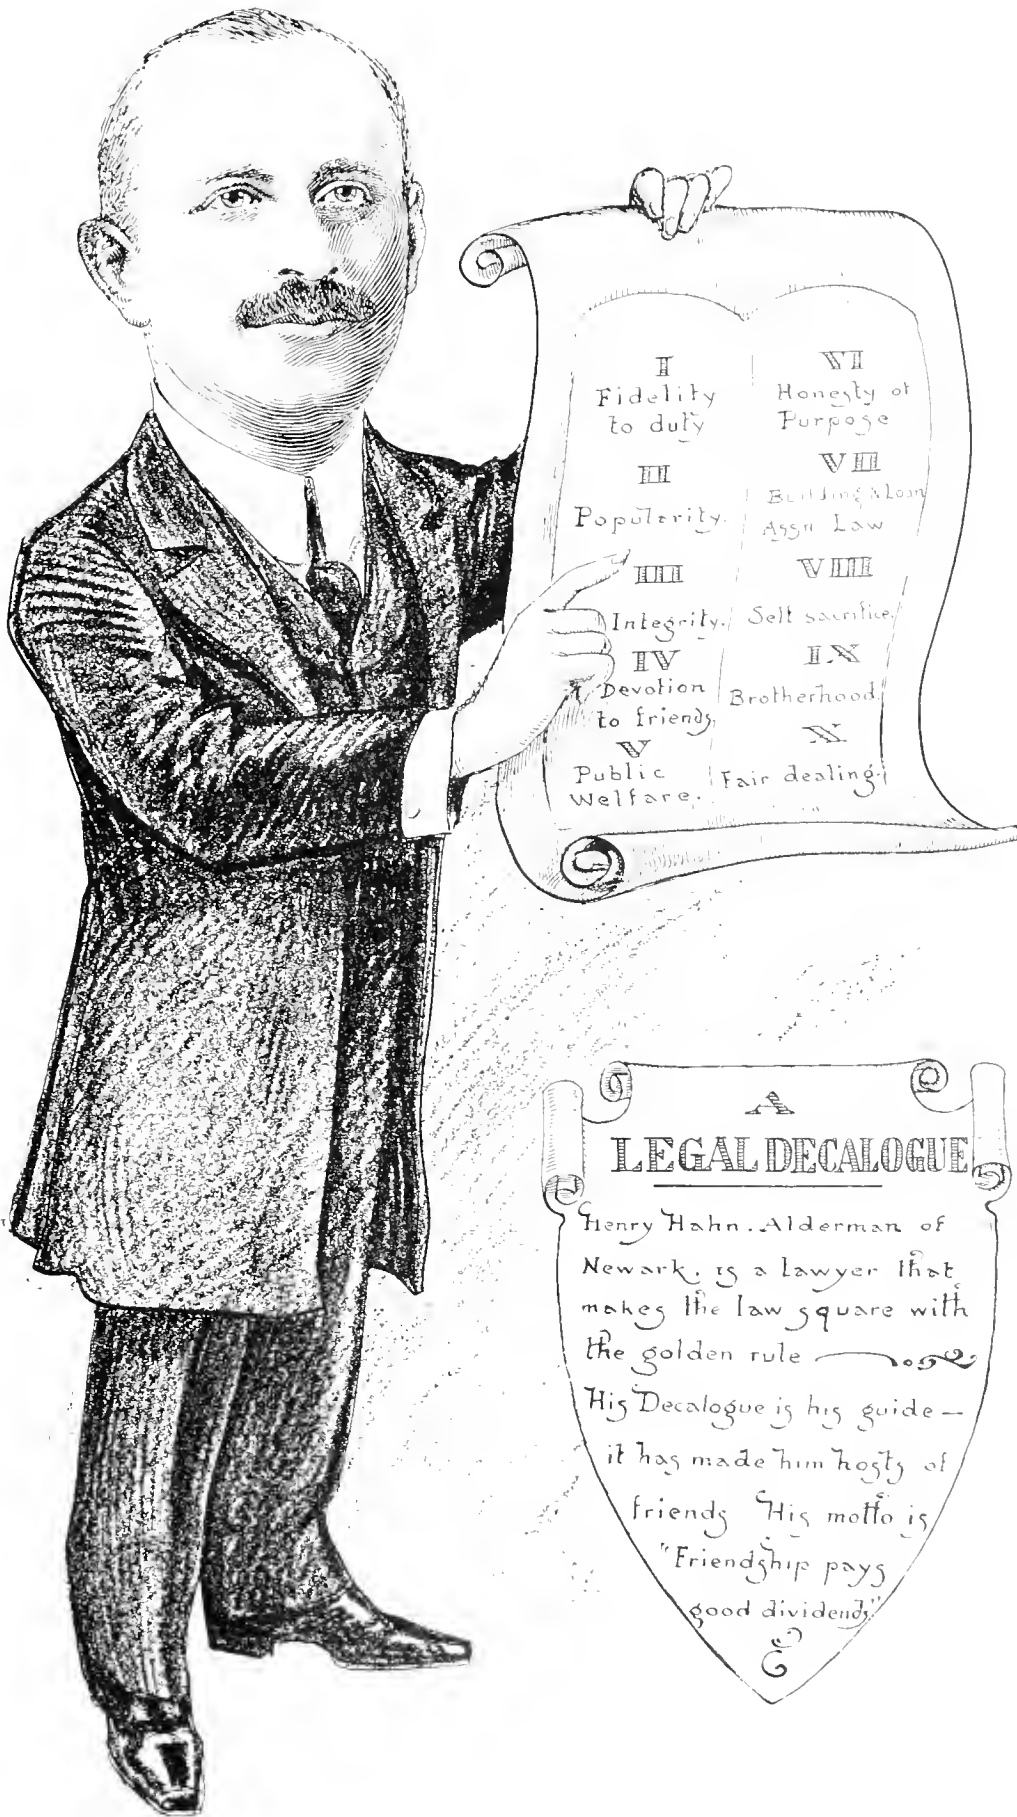 I
Fidelity
to duty
II
Popularity.
III
Integrity.
IV
Devotion
to friends,
V
Public
Welfare.
VI
Honesty of
Purpose
VII
Building & Loan
Assn Law
VIIII
Self sacrifice.
IX
Brotherhood.
X
Fair dealing.
A
LEGAL DECALOGUE
Henry Hahn. Alderman of
Newark, is a lawyer that
makes the law square with
the golden rule
His Decalogue is his guide —
it has made him hosts of
friends His motto is
"Friendship pays
good dividends"